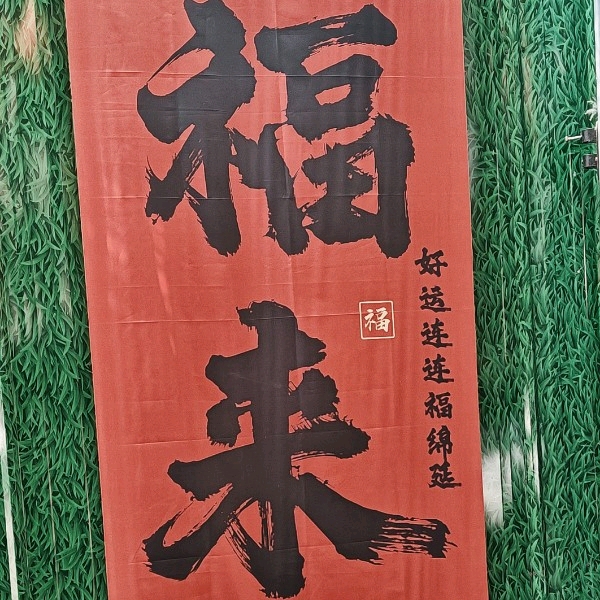 福来
福
好运连连福绵延